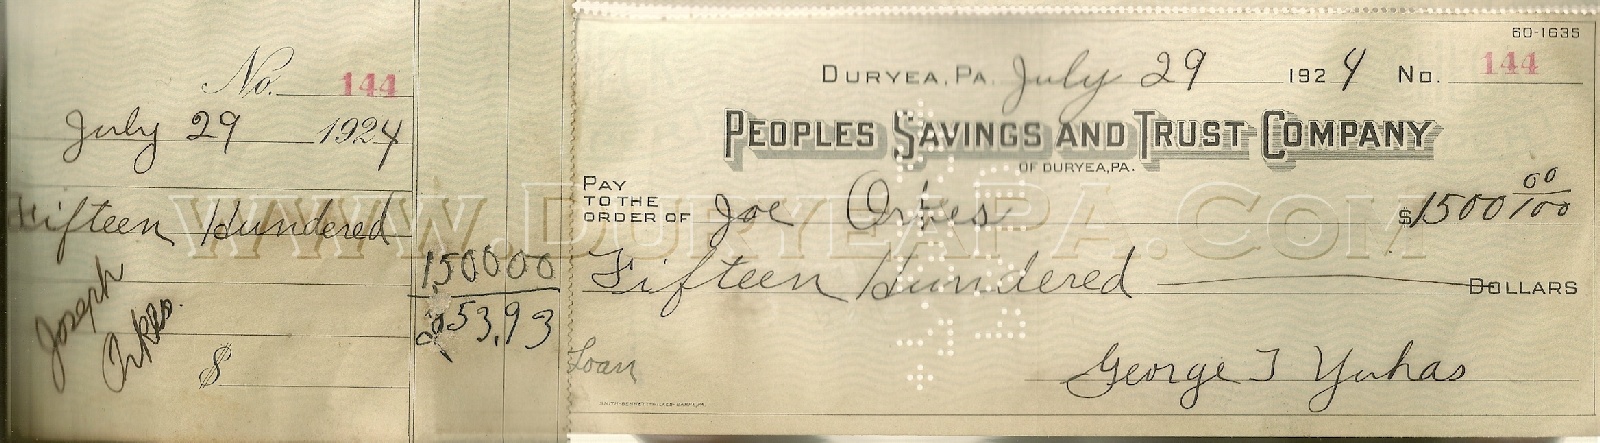 No. 144
July 29 1924
Fifteen Hundered
1,500 00
53.93
Joseph
Orkes.
$
60-1635
DURYEA, PA. July 29 1924 No. 144
PEOPLES SAVINGS AND TRUST COMPANY
OF DURYEA, PA.
PAY
TO THE
ORDER OF Joe Orkes $1500 00/100
Fifteen Hundered DOLLARS
Loan
George J Yuhas
WWW.DURYEAPA.COM